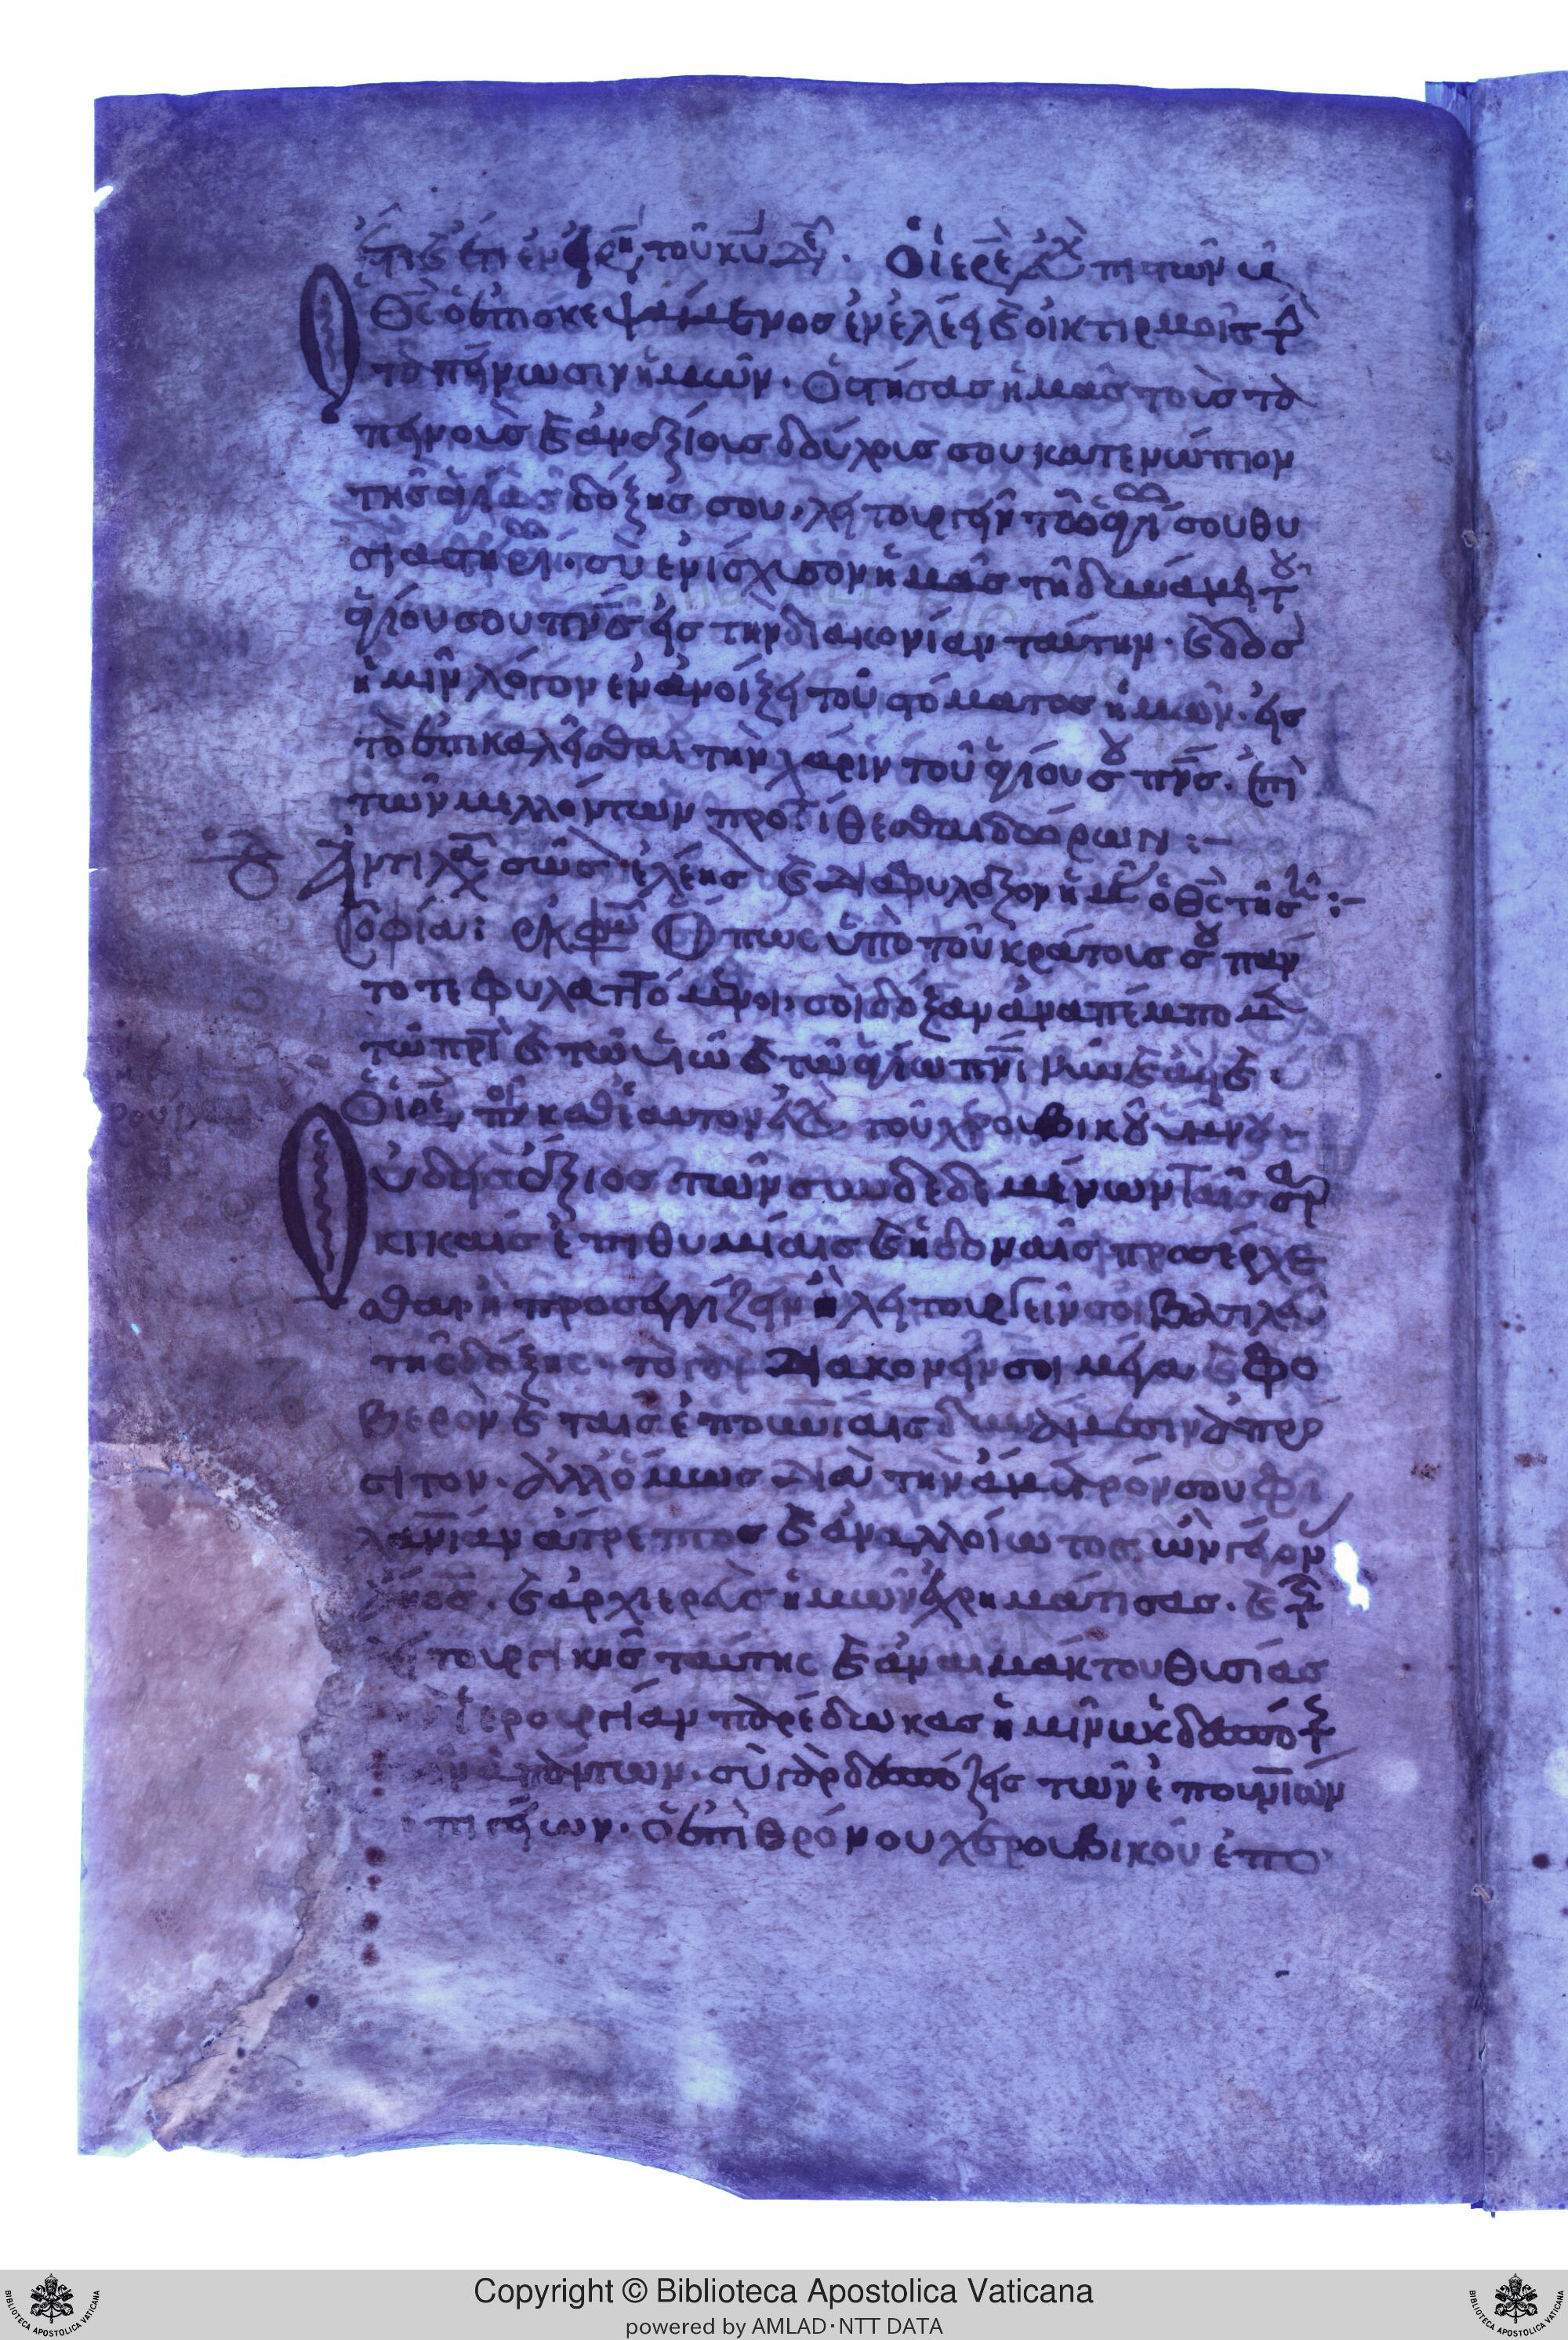 ἔτι καὶ ἔτι ἐν εἰρή τοῦ κυ δεη. ὁ ἱερε εὐχ πιστῶν
Ὁ θς ὁ ἐπισκεψάμενος ἐν ἐλέει καὶ οἰκτιρμοῖς τ
ταπείνωσιν ἡμῶν. ὁ στήσας ἡμᾶς τοὺς τα
πεινοὺς καὶ ἀναξίους δούλους σου κατενώπιον
τῆς ἁγίας δόξης σου, λειτουργεῖν τῶ ἁγί σου θυ
σιαστηρί. σὺ ἐνίσχυσον ἡμᾶς τῆ δυνάμει τ
ἁγίου σου πνς εἰς τὴν διακονίαν ταύτην. καὶ δὸς
ἡμῖν λόγον ἐν ἀνοίξει τοῦ στόματος ἡμῶν. εἰς
τὸ ἐπικαλεῖσθαι τὴν χάριν τοῦ ἁγίου σου πνς. ἐπὶ
τῶν μελλόντων προτίθεσθαι δώρων :-
Ἀντιλα σῶσ ἐλέησ καὶ διαφύλαξον ἡμ ὁ θς τῆ σῆ :-
Σοφία: ἐκφω Ὅπως ὑπὸ τοῦ κράτους σου πάν
τοτε φυλαττόμενοι, σοὶ δόξαν ἀναπέμπομ
τῶ πρι καὶ τῶ υἱῶ καὶ τῶ ἁγίω πνι νῦν καὶ ἀεὶ καὶ
Ὁ ἱρε καθ ἑαυτον εὐχ τοῦ χερουβικοῦ ὕμνου
Οὐδεὶς ἄξιος τῶν συνδεδεμένων ταῖς σαρ
κικαῖς ἐπιθυμίαις καὶ ἡδοναῖς προσέρχε
σθαι ἢ προσεγγίζειν ἢ λειτουργεῖν σοι βασιλεῦ
τῆς δόξης. τὸ γὰρ διακονεῖν σοι μέγα καὶ φο
βερὸν καὶ ταῖς ἐπουνίαις δυνάμεσιν ἀπρό
σιτον. ἀλλ ὅμως διὰ τὴν ἄμετρόν σου φι
λανίαν ἀτρέπτως καὶ ἀναλλοιώτως γέγον
ανος. καὶ ἀρχιερεὺς ἡμῶν ἐχρημάτισας. καὶ τ
τουργικῆς ταύτης καὶ ἀναιμάκτου θυσίας
ἱερουργίαν παρέδωκας ἡμῖν ὡς δεσπότ
ἁπάντων. σὺ γὰρ δεσπόζεις τῶν ἐπουνίων
ἐπιγείων. ὁ ἐπὶ θρόνου χερουβικοῦ ἐπο
Copyright © Biblioteca Apostolica Vaticana
powered by AMLAD·NTT DATA